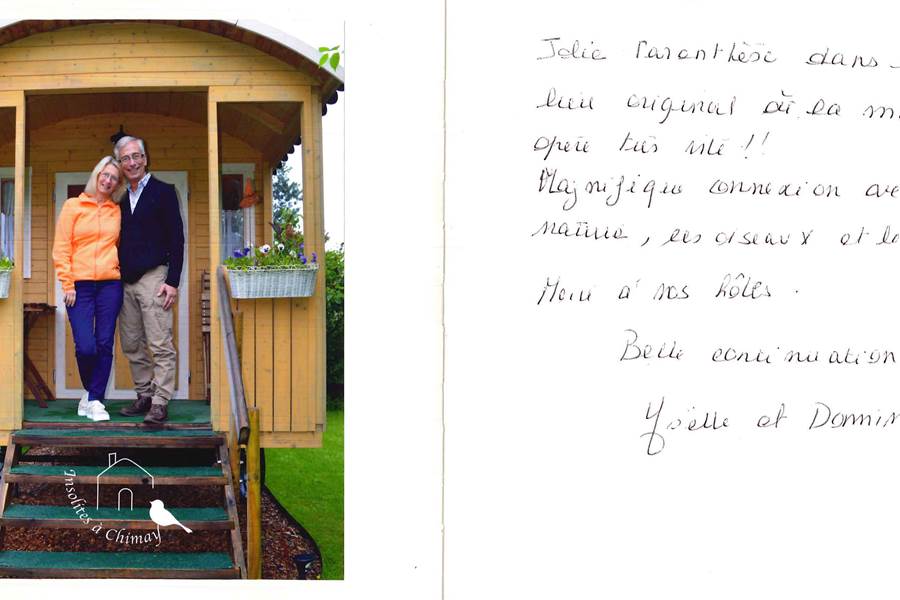 Insolites à Chimay
Jolie Paranthèse dans
lieu original où la
opère très vite !!
Magnifique connexion
nature, les oiseaux et
Merci à nos hôtes.
Belle continuation
Yselle et